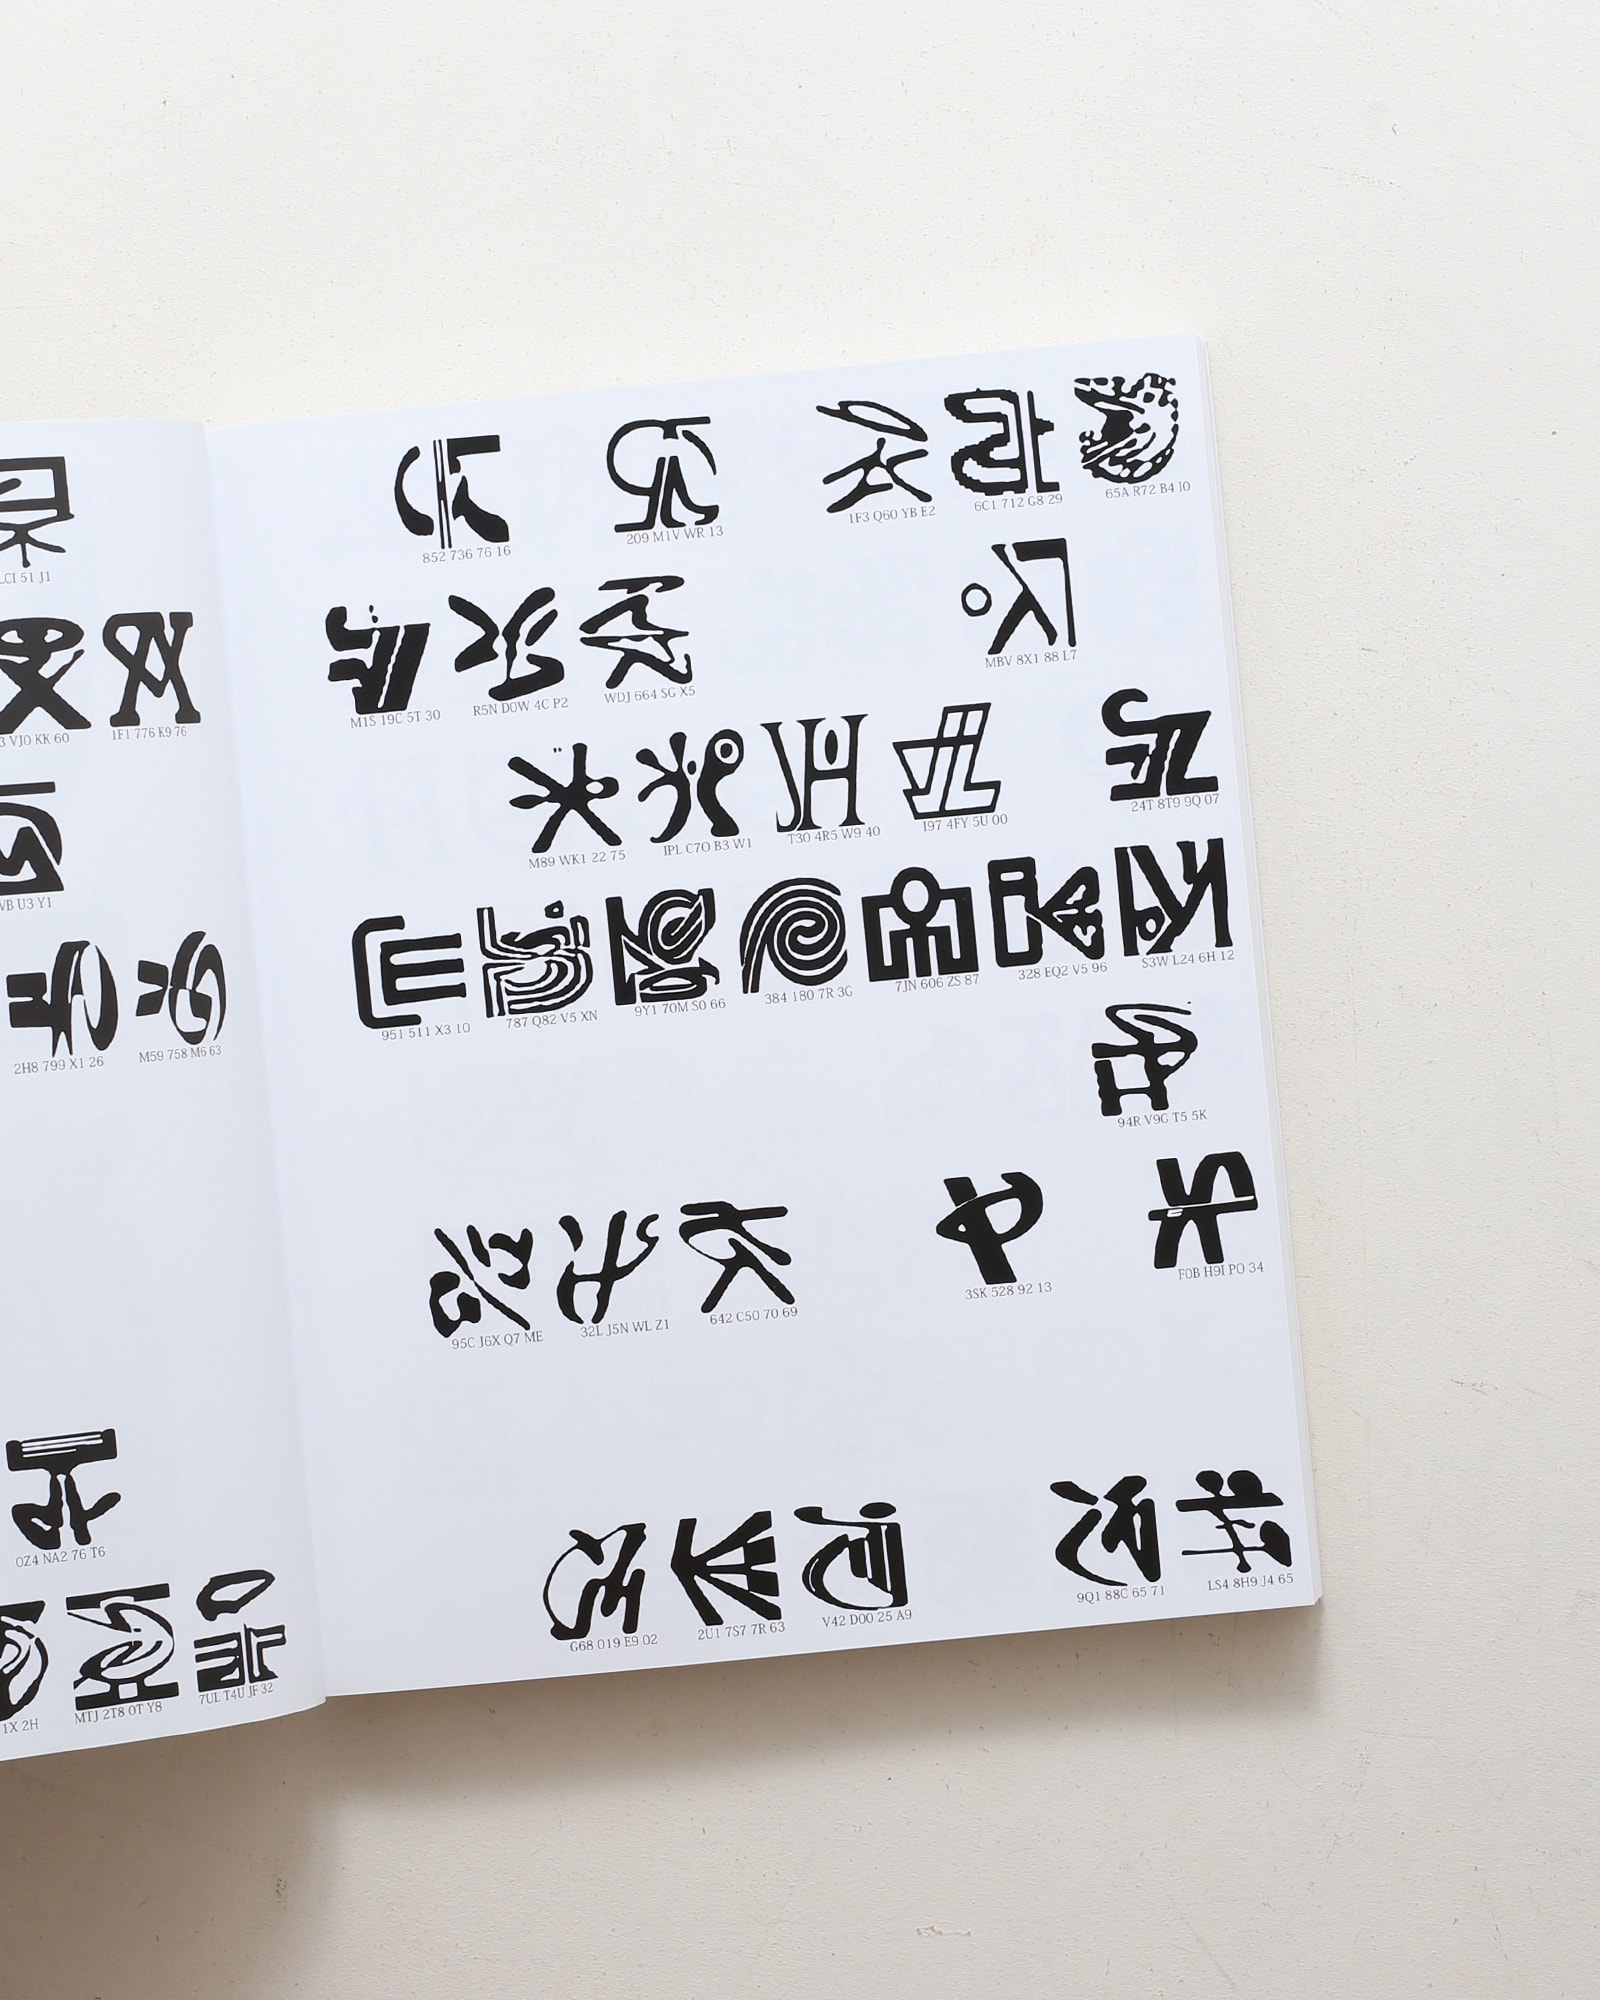 LCI 51 J1
VJ0 KK 60
1F1 776 K9 76
U3 Y1
2H8 799 X1 26
M59 758 M6 63
0Z4 NA2 76 T6
1X 2H
MTJ 2T8 0T Y8
7UL T4U JF 32
852 736 76 16
209 M1V WR 13
1F3 Q60 YB E2
6C1 712 G8 29
65A R72 B4 I0
M1S 19C 5T 30
R5N D0W 4C P2
WDJ 664 SG X5
MBV 8X1 88 L7
M89 WK1 22 75
IPL C7O B3 W1
T30 4R5 W9 40
I97 4FY 5U 00
24T 8T9 9Q 07
951 511 X3 10
787 Q82 V5 XN
9Y1 70M S0 66
384 180 7R 3G
7JN 606 ZS 87
328 EQ2 V5 96
S3W L24 6H 12
94R V9G T5 5K
95C J6X Q7 ME
32L J5N WL Z1
642 C50 70 69
3SK 528 92 13
F0B H9I PO 34
G68 019 E9 02
2U1 7S7 7R 63
V42 D00 25 A9
9Q1 88C 65 71
LS4 8H9 J4 65